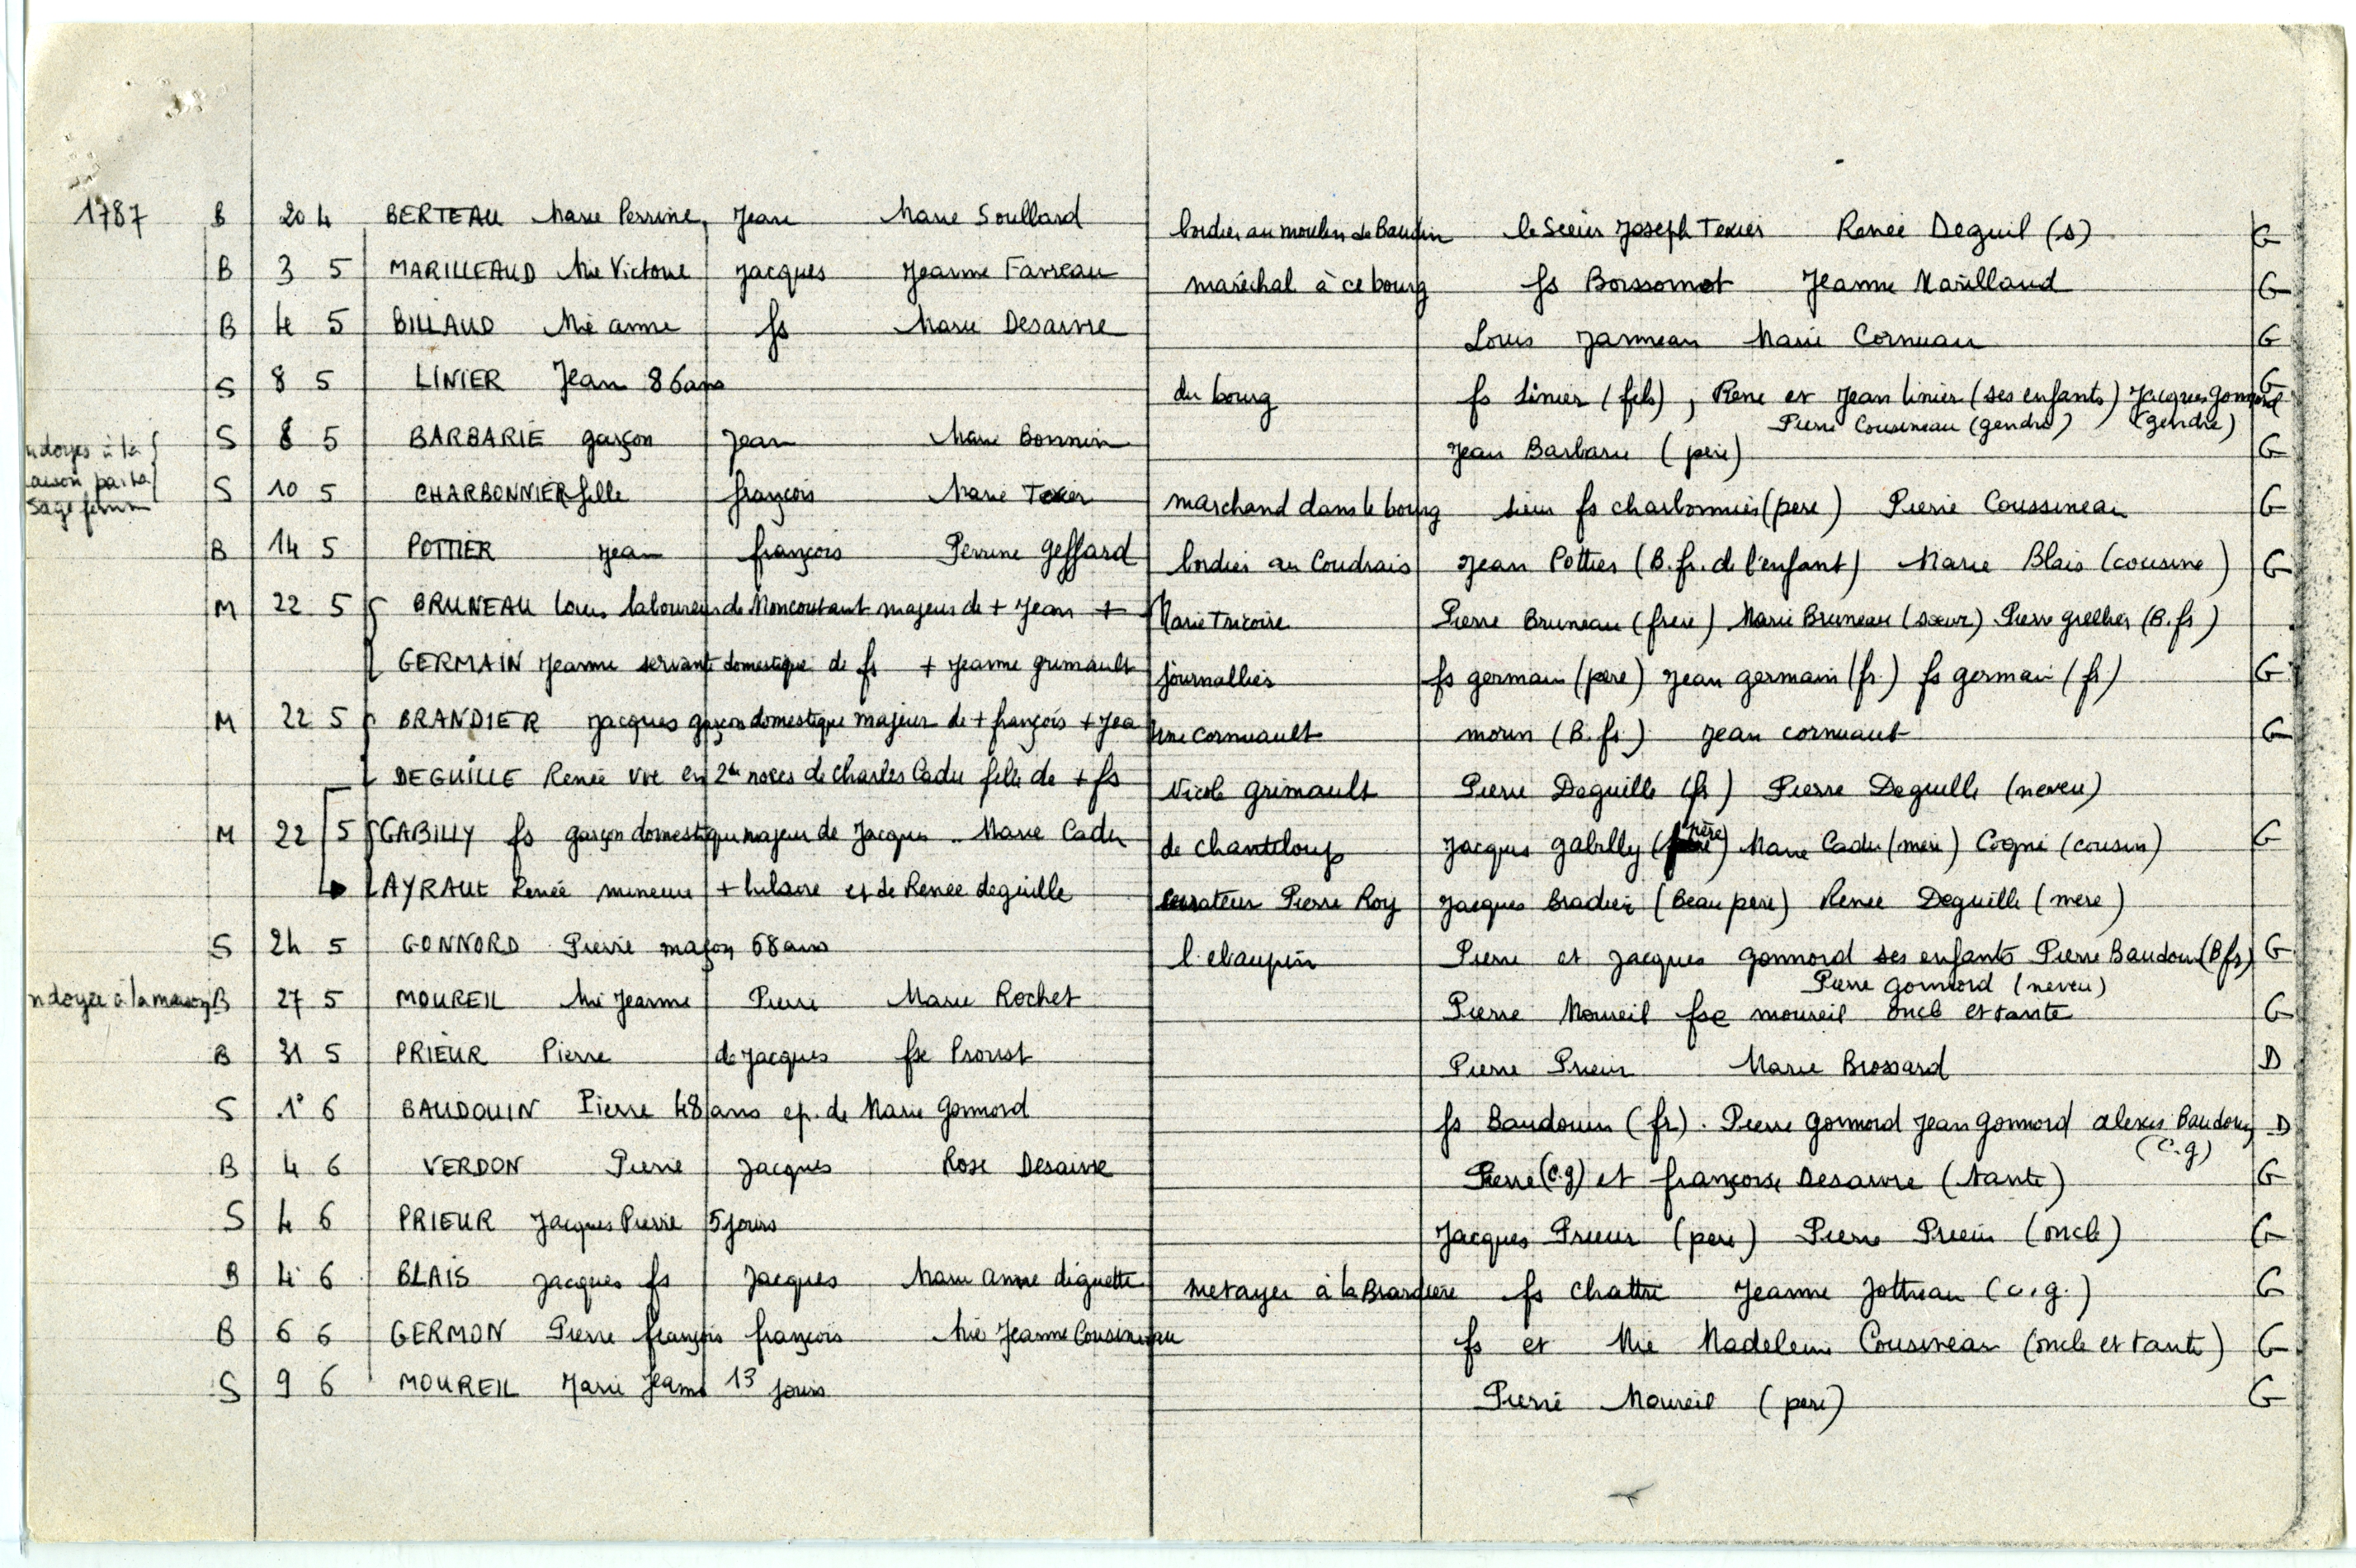 1787 B 20 4 BERTEAU Marie Perrine, Jean Marie Soullard bordier au moulin de Baudin le Sieur Joseph Texier Renée Deguil (s) G
B 3 5 MARILLEAUD Mie Victoire Jacques Jeanne Favreau maréchal à ce bourg fs Boissomot Jeanne Marilland G
B 4 5 BILLAUD Mie anne fs Marie Desaivre Louis Janneau Marie Cornuau G
S 8 5 LINIER Jean 86 ans du bourg fs Linier (fils), Rene et Jean linier (ses enfants) Jacques Gonnord G
Pierre Cousineau (gendre) (gendre)
S 8 5 BARBARIE garçon Jean Marie Bonnin Jean Barbarie (père) G
ndoyés à la
aison par la
Sage femme
S 10 5 CHARBONNIER fille françois Marie Texier marchand dans le bourg sieur fs charbonnier (pere) Pierre Coussineau G
B 14 5 POTTIER Jean françois Perrine Geffard bordier au Coudrais Jean Pottier (B. fr. de l'enfant) Marie Blais (cousine) G
M 22 5 BRUNEAU louis laboureur de Moncoutant majeur de + Jean + Marie Tricoire Pierre Bruneau (frere) Marie Bruneau (sœur) Pierre grellier (B. fr)
GERMAIN Jeanne servante domestique de fs + Jeanne grimault journallier fs germain (père) Jean germain (fr.) fs germain (fr) G
M 22 5 BRANDIER Jacques garçon domestique majeur de + françois + Jeanne Cornuault morin (B. fr.) Jean cornuaut G
DEGUILLE Renée vve en 2de noces de Charles Cadu fille de + fs Nicole Grimault Pierre Deguille (fr) Pierre Deguille (neveu)
M 22 5 GABILLY fs garçon domestique majeur de Jacques Marie Cadu de chanteloup Jacques gabilly (père) Marie Cadu (mère) Cogné (cousin) G
AYRAUT Renée mineure + hilaire et de Renée deguille curateur Pierre Roy Jacques Bradier (Beau pere) Renée Deguille (mère)
S 24 5 GONNORD Pierre maçon 68 ans l.ebaupin Pierre et Jacques gonnord ses enfants Pierre Baudoin (B fr) G
Pierre gonnord (neveu)
ndoyée à la maison B 27 5 MOUREIL Mie Jeanne Pierre Marie Rochet Pierre Moureil fse moureil oncle et tante G
B 31 5 PRIEUR Pierre de Jacques fse Proust Pierre Prieur Marie Brossard D
S 1° 6 BAUDOUIN Pierre 48 ans ep. de Marie Gonnord fs Baudouin (fr). Pierre Gonnord Jean Gonnord alexis Baudouin D
(c.g)
B 4 6 VERDON Pierre Jacques Rose Desaivre Pierre (c.g) et françoise Desaivre (tante) G
S 4 6 PRIEUR Jacques Pierre 5 jours Jacques Prieur (pere) Pierre Prieur (oncle) G
B 4 6 BLAIS Jacques fs Jacques Marie anne diguette metayer à la Brardiere fs chattri Jeanne Jottreau (c.g.) G
B 6 6 GERMON Pierre françois françois Mie Jeanne Cousineau fs et Mie Madeleine Cousineau (oncle et tante) G
S 9 6 MOUREIL Marie Jeanne 13 jours Pierre Moureil (pere) G